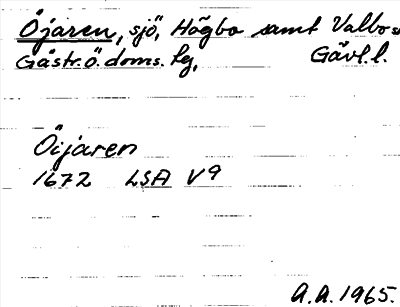 Öjaren, sjö, Högbo samt Valbo s
Gästr. Ö. doms. lg, Gävl. l.
Öijaren
1672 LSA V9
A.A. 1965.